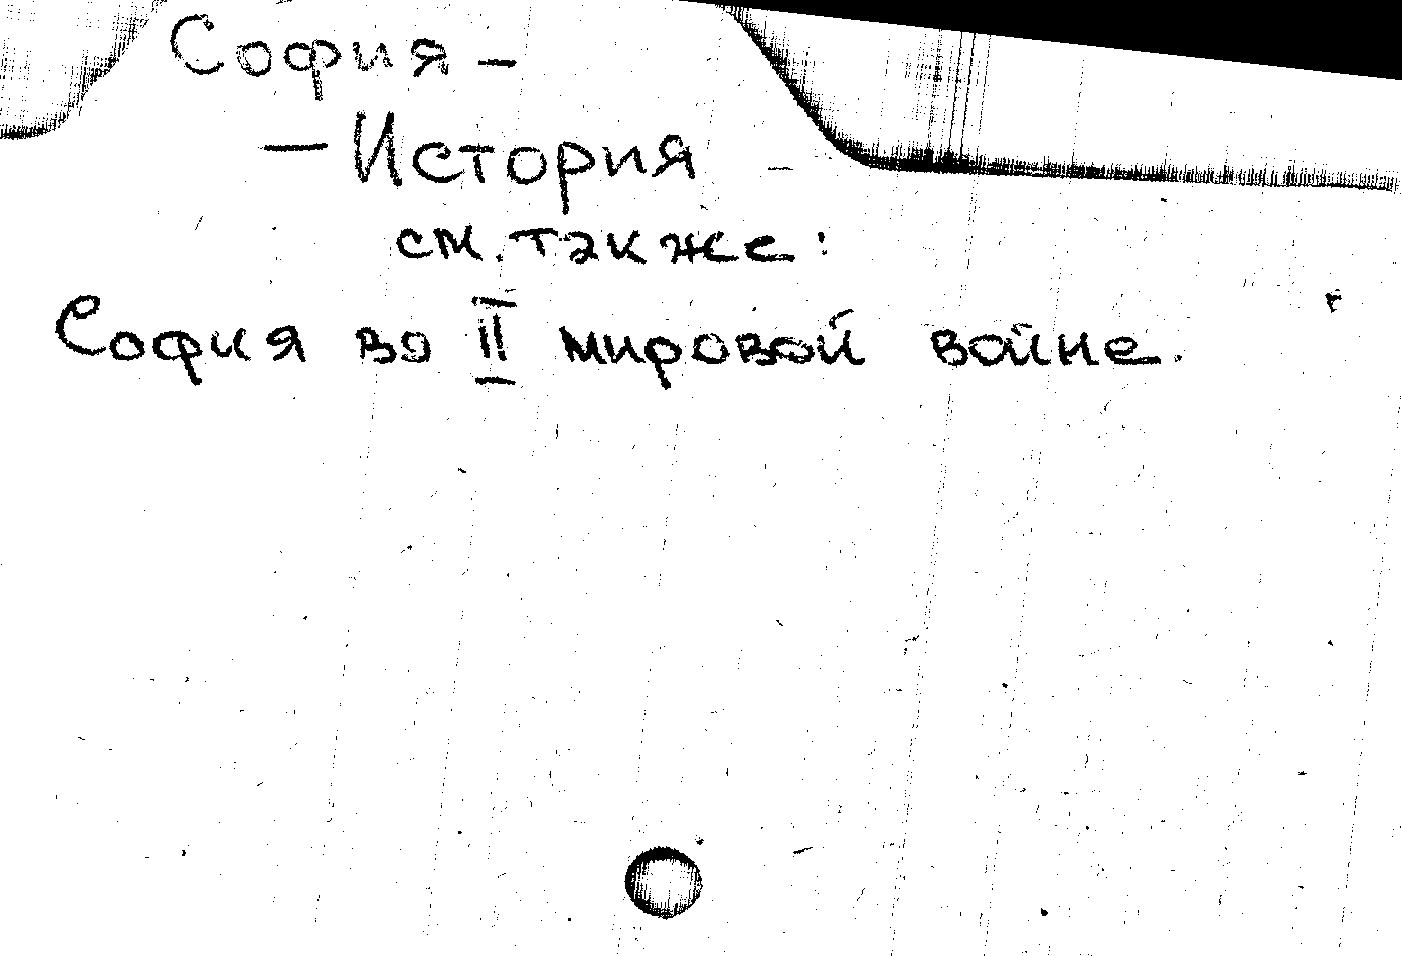 София -
- История -
см. также:
София во II мировой войне.